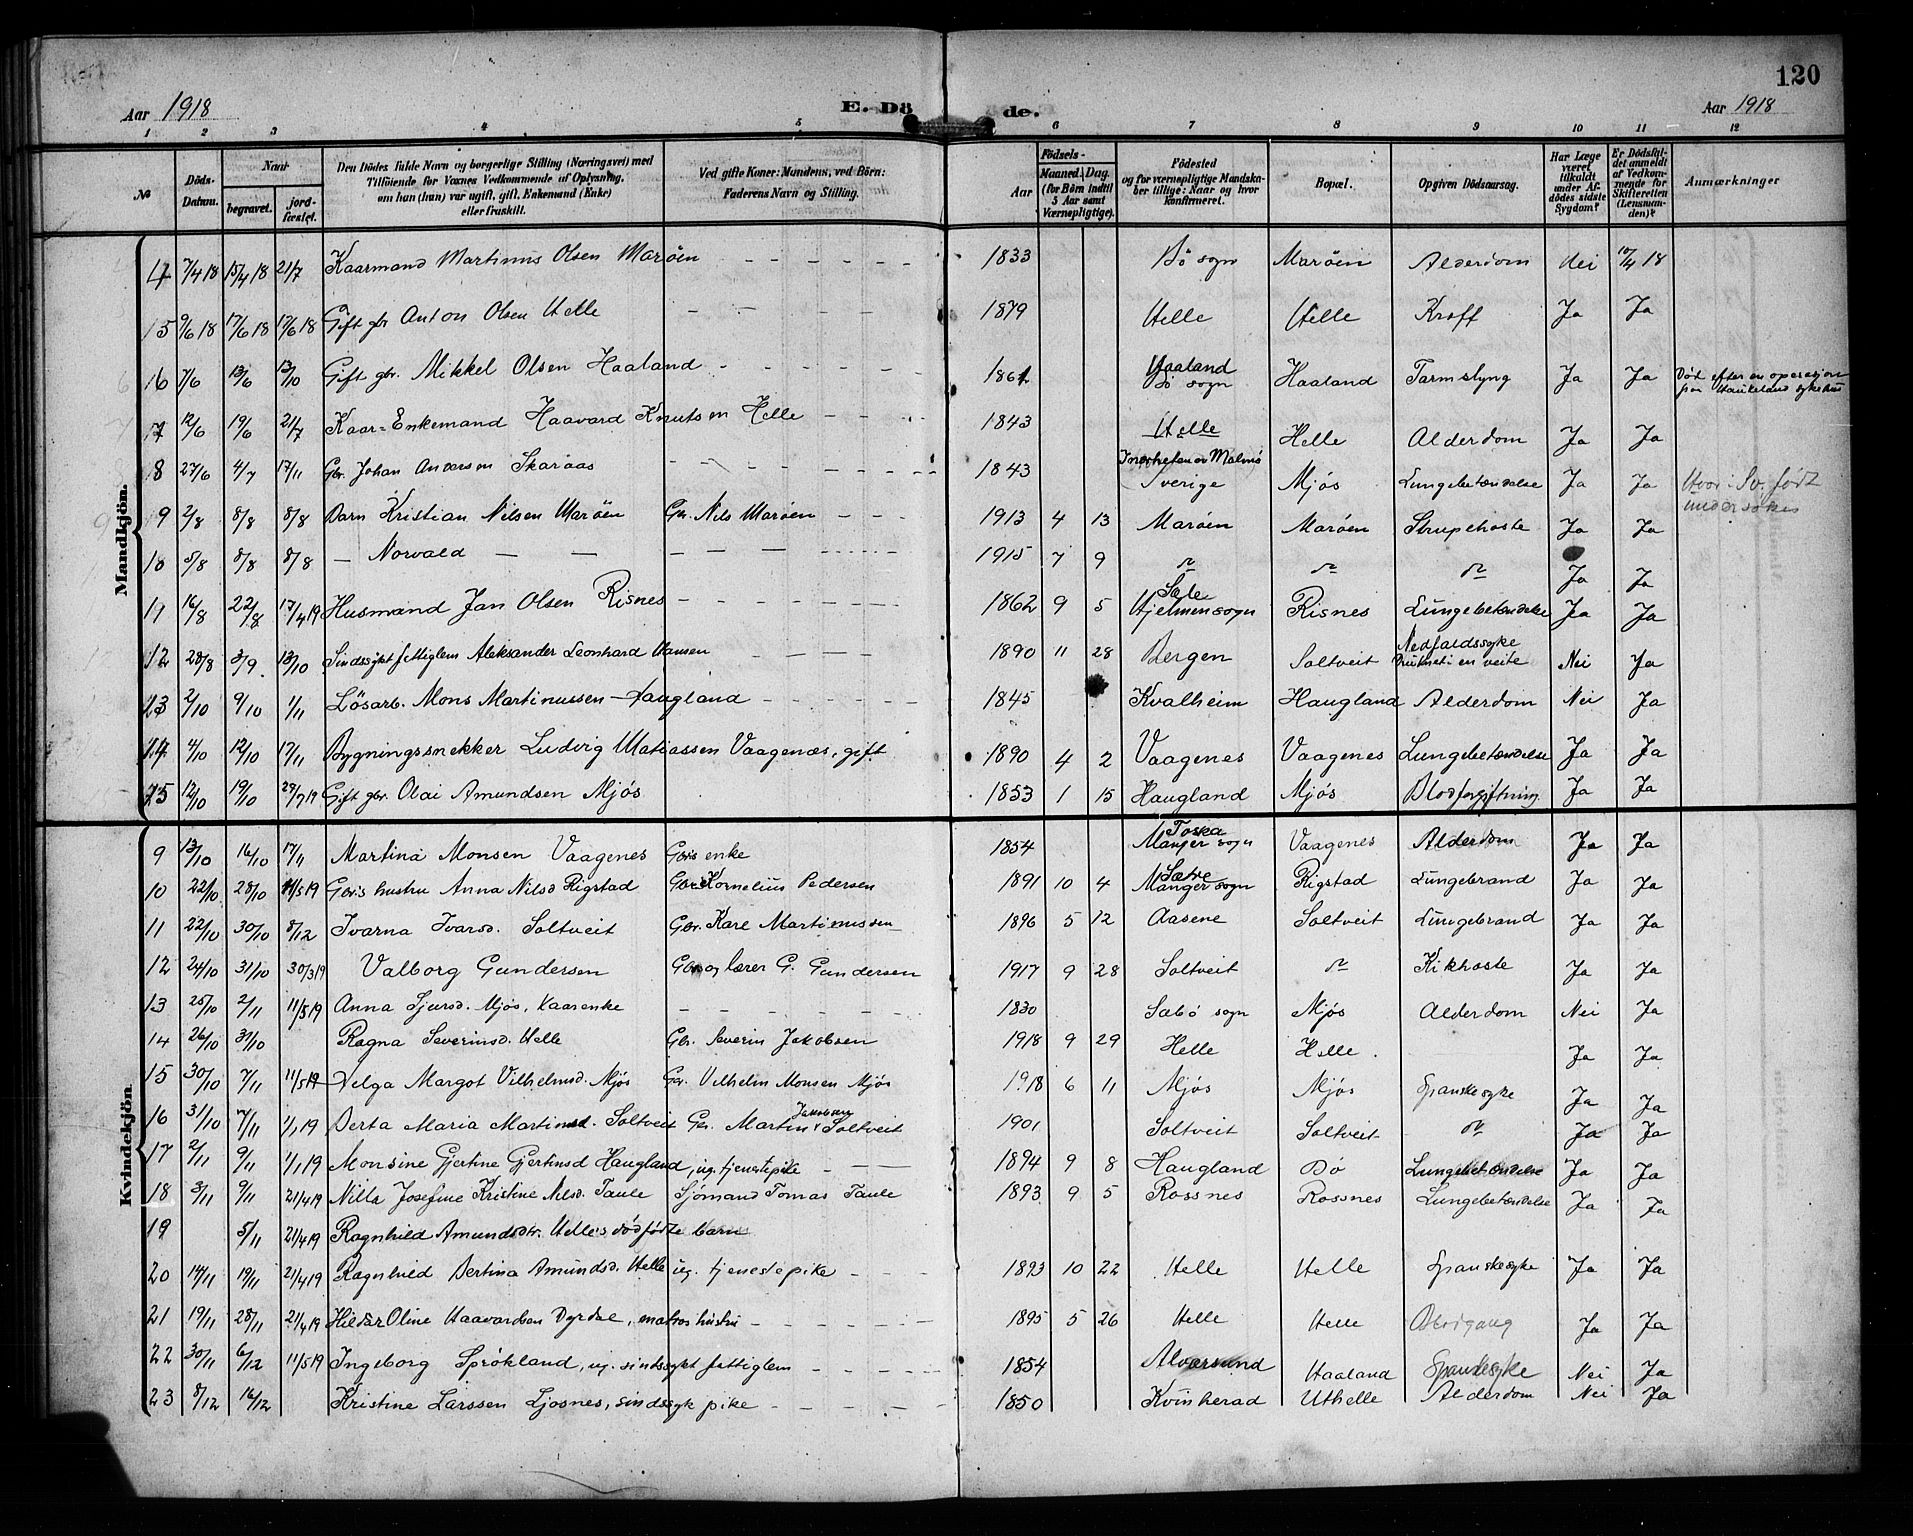 120
Aar 1918 E. Dö de. Aar 1918
1 2 3 4 5 6 7 8 9 10 11 12
№ Döds-Datum. Naar begravet. jord-fæstet. Den Dödes fulde Navn og borgerlige Stilling (Næringsvei) med Tilföiende for Voxnes Vedkommende af Oplysning, om han (hun) var ugift, gift, Enkemand (Enke) eller fraskilt. Ved gifte Koner: Mandens, ved Börn: Faderens Navn og Stilling. Aar Födsels- Maaned. Dag. (for Börn indtil 5 Aar samt Værnepligtige). Födested og for værnepligtige Mandskaber tillige: Naar og hvor konfirmeret. Bopæl. Opgiven Dödsaarsag. Har Læge været tilkaldt under Afdödes sidste Sygdom? Er Dödsfaldet anmeldt af Vedkommende for Skifteretten (Lensmanden)? Anmærkninger
Mandkjön.
7/4 18 15/4 18 21/7 Kaarmand Martinus Olsen Marøen – – – – – 1833 Bø sogn Marøen Alderdom Nei 10/4 18
15 9/6 18 17/6 18 17/6 18 Gift gbr Anton Olsen Helle – – – – – 1879 Helle Helle Kræft Ja Ja
16 7/6 13/6 13/10 Gift gbr. Mikkel Olsen Haaland – – – – – Haaland Bø sogn Haaland Tarmslyng Ja Ja Død efter en operasjon paa Haukeland sykehus
17 12/6 19/6 21/7 Kaar-Enkemand Haavard Knutsen Helle – – – 1843 Helle Helle Alderdom Ja Ja
8 27/6 4/7 17/11 Gbr. Johan Andersen Skaraas – – – – – 1843 Malmø Sverige Mjøs Lungebetændelse Ja Ja født undersøkes
9 2/8 8/8 8/8 Barn Kristian Nilsen Marøen Gbr. Nils Marøen – – – 1913 4 13 Marøen Marøen Strupehoste Ja Ja
10 5/8 8/8 8/8 – Norvald – – – – – – – 1915 7 9 " " " Ja Ja
16/8 22/8 17/4 19 Husmand Jan Olsen Risnes – – – – 1862 9 5 Sæle Hjelmensogn Risnes Lungebetændelse Ja Ja
12 28/8 3/9 13/10 Sindssykt fattiglem Aleksander Leonhard Hansen – – – – 1890 11 28 Bergen Soltveit Nedfaldssyke Druknet i en veite Nei Ja
13 2/10 9/10 1/11 Løsarb. Mons Martinussen Haugland – – – – – 1845 Kvalheim Haugland Alderdom Nei Ja
14 4/10 12/10 17/11 Bygningssnekker Ludvig Matiassen Vaagenæs, gift 1890 4 2 Vaagenes Vaagenes Lungebetændelse Ja Ja
15 12/10 19/10 27/7 19 Gift gbr. Olai Amundsen Mjøs 1853 1 15 Haugland Mjøs Blodforgiftning Ja Ja
Kvindekjön
9 13/10 16/10 17/11 Martina Monsen Vaagenes Gbrs enke 1854 Toska Manger sogn Vaagenes Alderdom Ja Ja
10 22/10 28/10 11/5 19 Gbrs hustru Anna Nilsd Rigstad Gbr. Kornelius Pedersen 1891 10 4 Sætre Manger sogn Rigstad Lungebrand Ja Ja
11 22/10 30/10 8/12 Ivarna Ivarsd. Soltveit Gbr. Kare Martinussen 1896 5 12 Aasene Soltveit Lungebrand Ja Ja
12 24/10 31/10 30/3 19 Valborg Gundersen Gbr. og lærer G. Gundersen 1917 9 28 Soltveit " Kikhoste Ja Ja
13 25/10 2/11 11/5 19 Anna Sjursd. Mjøs, Kaarenke – – – – – 1830 Sæbø sogn Mjøs Alderdom Nei Ja
14 26/10 31/10 Ragna Severinsd. Helle Gbr. Severin Jakobsen 1918 9 29 Helle Helle. Ja Ja
15 30/10 7/11 11/5 19 Helga Margot Vilhelmsd. Mjøs Gbr. Vilhelm Monsen Mjøs 1918 6 11 Mjøs Mjøs Spanskesyke Ja Ja
16 31/10 7/11 1/1 19 Berta Maria Martinsd. Soltveit Gbr. Martin Jakobsen Soltveit 1901 Soltveit Soltveit " Ja Ja
17 2/11 9/11 1/1 19 Monsine Gjertine Gjertinsd Haugland, ug. tjenestepike – – – 1894 9 8 Haugland Bø Lungebetændelse Ja Ja
18 3/11 9/11 21/4 19 Nilla Josefine Kristine Nilsd. Taule Sjømand Tomas Taule 1893 9 5 Rossnes Rossnes Lungebetændelse Ja Ja
19 5/11 21/4 19 Ragnhild Amundsdtr. Helle's dødfødte barn
20 14/11 19/11 21/4 19 Ragnhild Bertina Amundsd. Helle ug. tjenestepike – – 1893 10 22 Helle Helle Spanskesyke Ja Ja
21 19/11 28/11 21/4 19 Hilda Oline Haavardsen Dyrdal, matros hustru – – – – 1895 5 26 Helle Helle Ja Ja
22 30/11 6/12 11/5 19 Ingeborg Sprøkland, ug. sindssykt fattiglem – – – – 1854 Alversund Haaland Spanskesyke Nei Ja
23 8/12 16/12 Kristine Larssen Ljosnes, sindssyk pike – – – – – 1850 Kvinherad Uthelle Alderdom Nei Ja